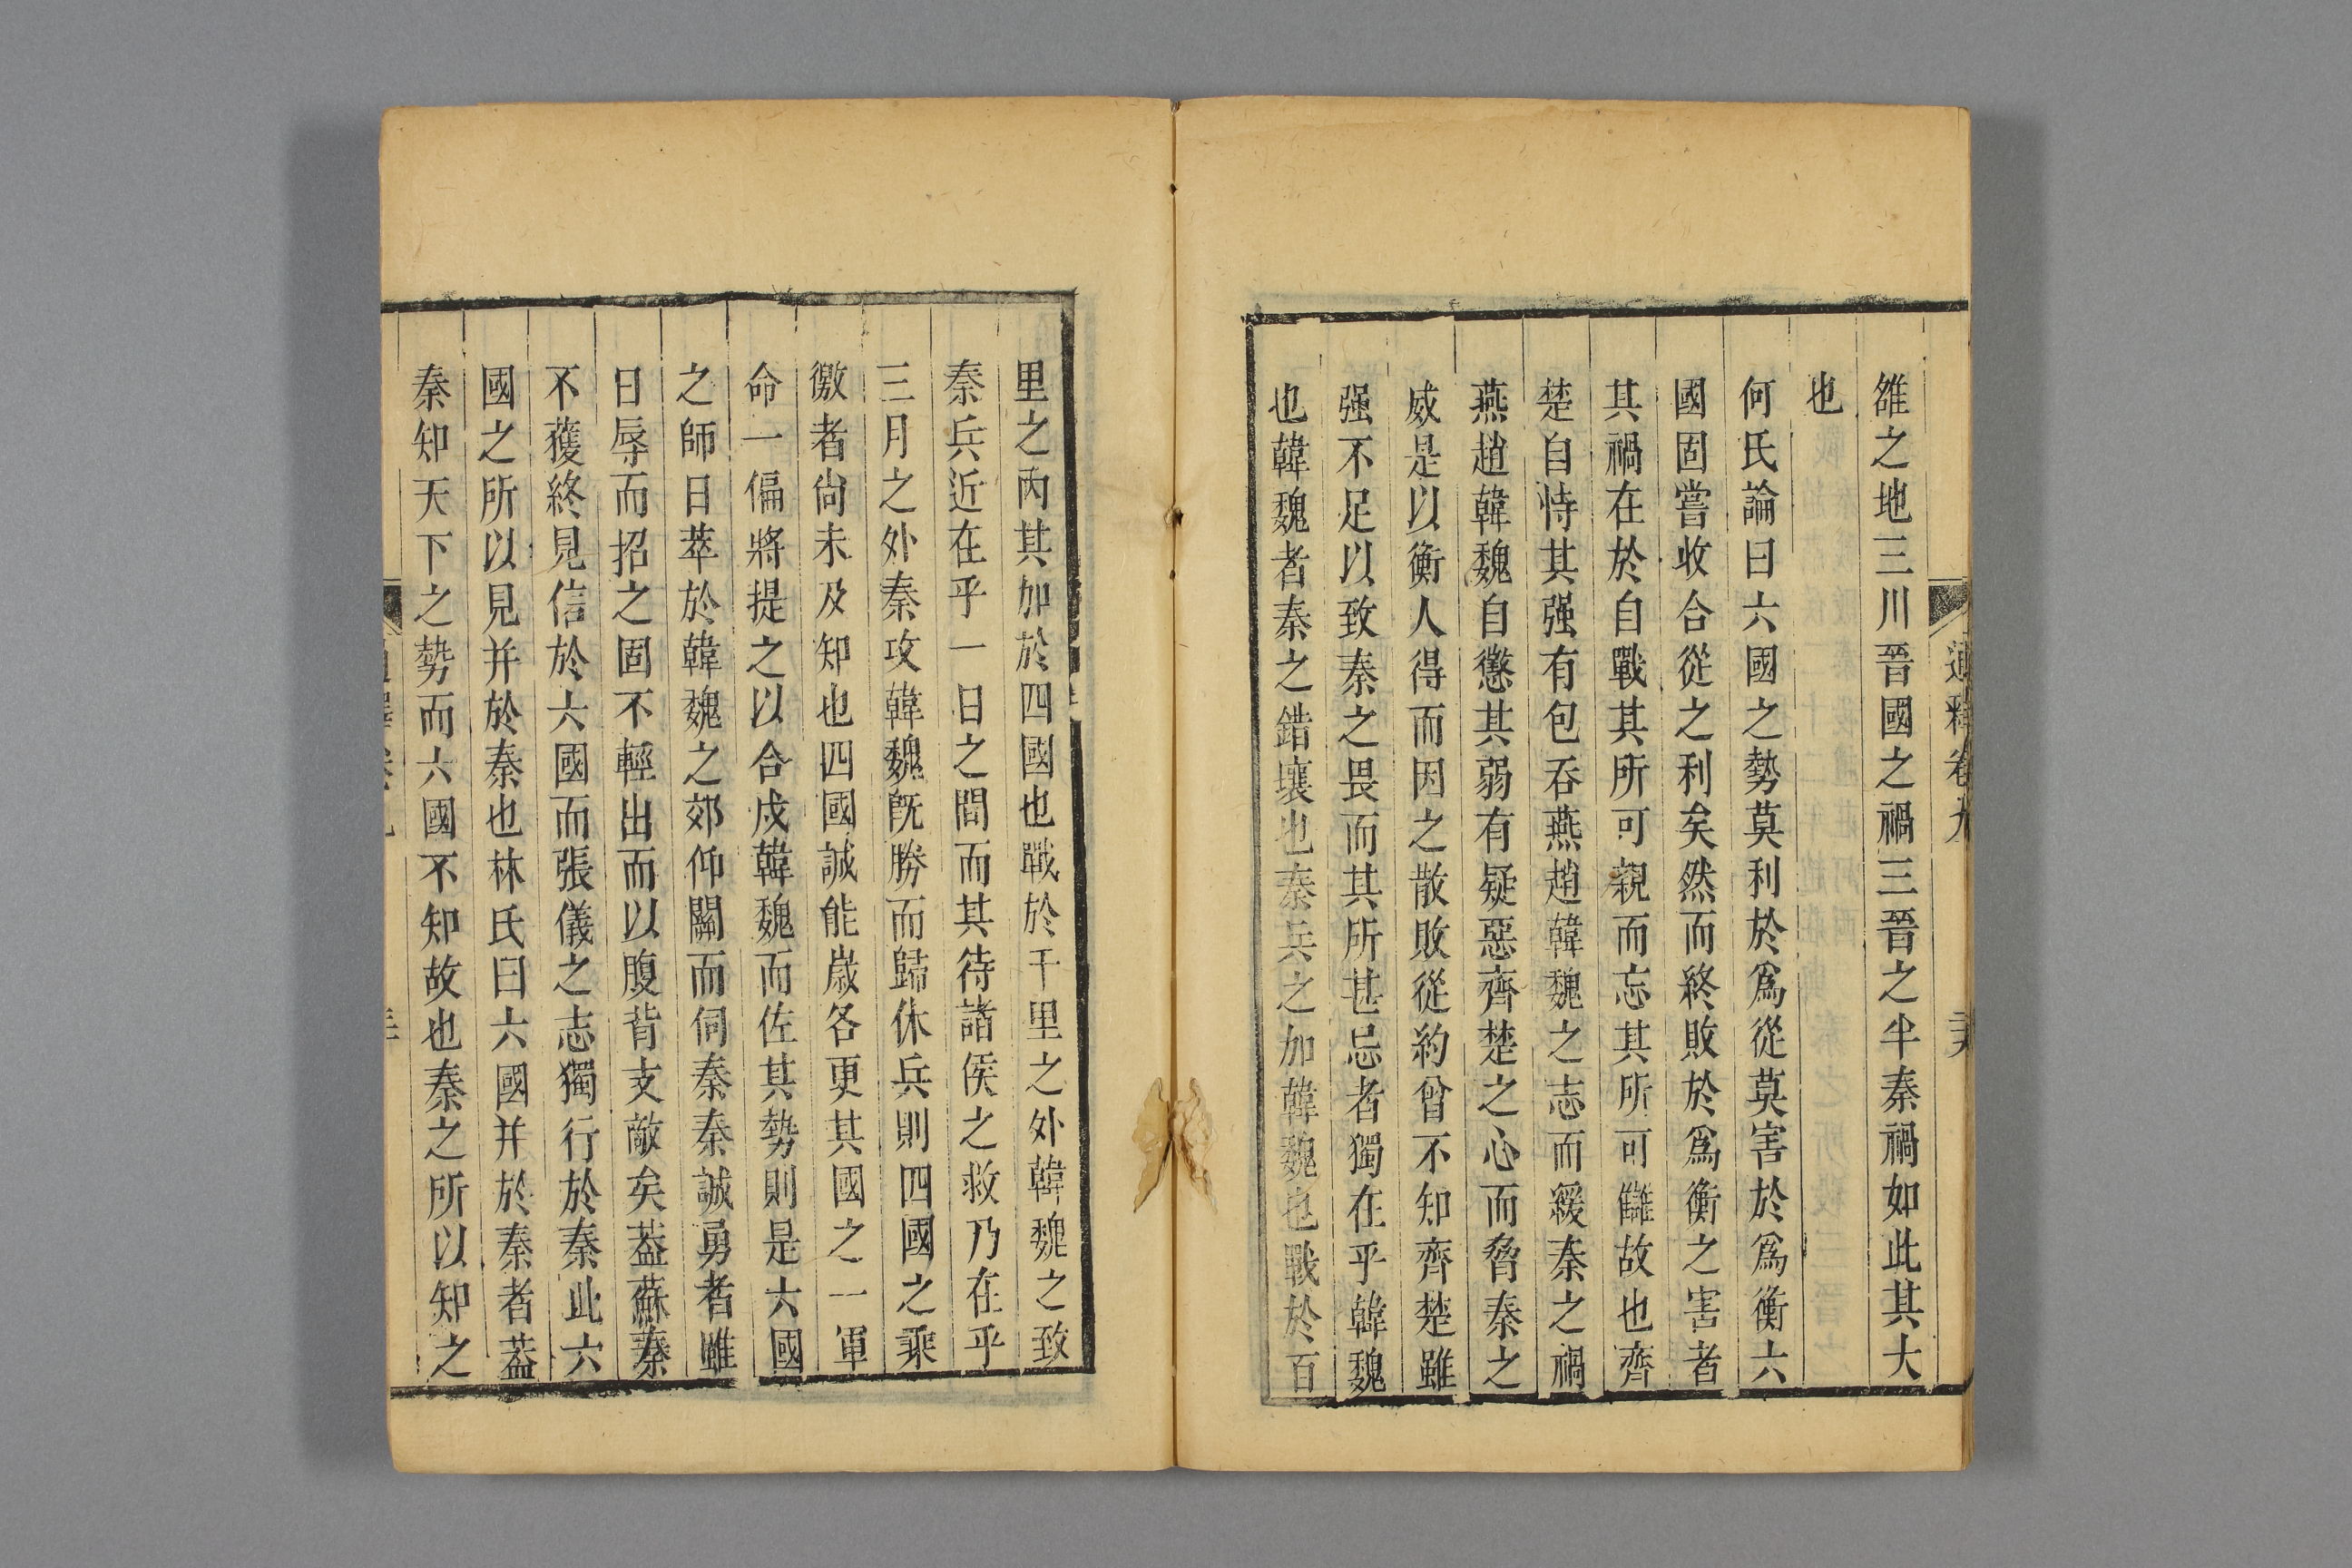 通釋卷九
雒之地三川晉國之禍三晉之半秦禍如此其大
也
何氏論曰六國之勢莫利於爲從莫害於爲衡六
國固嘗收合從之利矣然而終敗於爲衡之害者
其禍在於自戰其所可親而忘其所可讎故也齊
楚自恃其强有包吞燕趙韓魏之志而緩秦之禍
燕趙韓魏自懲其弱有疑惡齊楚之心而脅秦之
威是以衡人得而因之散敗從約曾不知齊楚雖
强不足以致秦之畏而其所甚忌者獨在乎韓魏
也韓魏者秦之錯壤也秦兵之加韓魏也戰於百
里之內其加於四國也戰於千里之外韓魏之致
秦兵近在乎一日之間而其待諸侯之救乃在乎
三月之外秦攻韓魏旣勝而歸休兵則四國之乘
徼者尙未及知也四國誠能歲各更其國之一軍
命一偏將提之以合戍韓魏而佐其勢則是六國
之師日萃於韓魏之郊仰關而伺秦秦誠勇者雖
日辱而招之固不輕出而以腹背支敵矣葢蘇秦
不獲終見信於六國而張儀之志獨行於秦此六
國之所以見并於秦也林氏曰六國并於秦者葢
秦知天下之勢而六國不知故也秦之所以知之